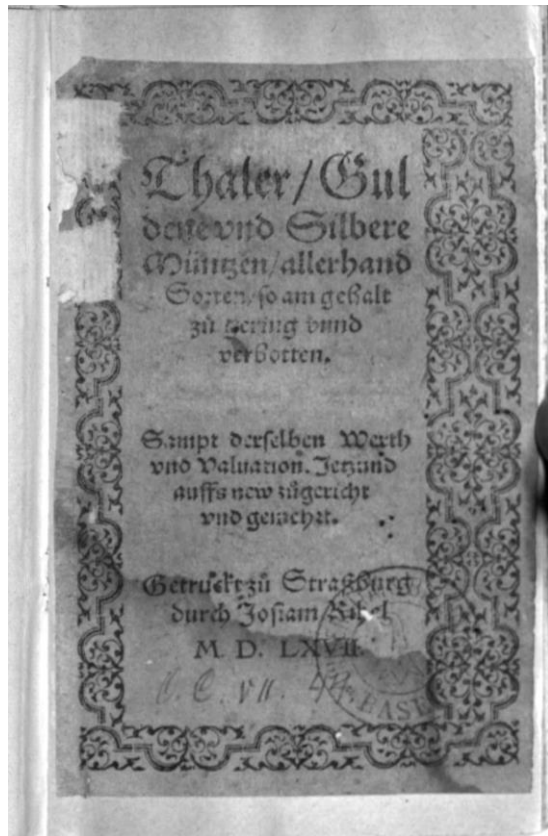 Thaler/Gul
dene vnd Silbere
Müntzen/allerhand
Sorten/so am gehalt
zů gering vnnd
verbotten.
Sampt derselben Werth
vnd Valuation. Jetzund
auffs new zůgericht
vnd gemehrt.
Getruckt zů Straßburg
durch Josiam Rihel
M. D. LXVII.